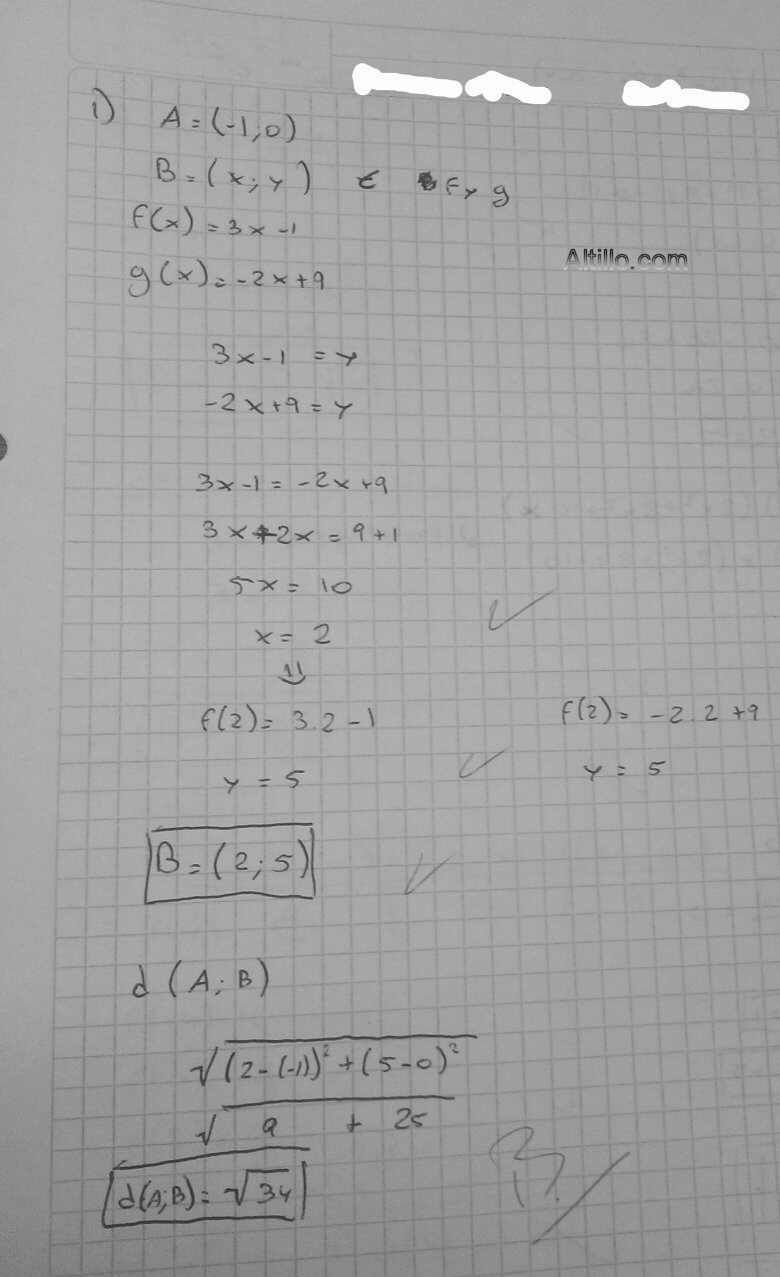 1) A = (-1,0)
B = (x; y) ∈ f y g
f(x) = 3x -1
Altillo.com
g(x) = -2x+9
3x-1 = y
-2x+9 = y
3x-1 = -2x+9
3x+2x = 9+1
5x = 10
x = 2
⇓
f(2) = 3.2 -1 f(2) = -2.2 +9
y = 5 y = 5
B = (2;5)
d (A; B)
√(2-(-1))² + (5-0)²
√ 9 + 25
d(A;B) = √34
B